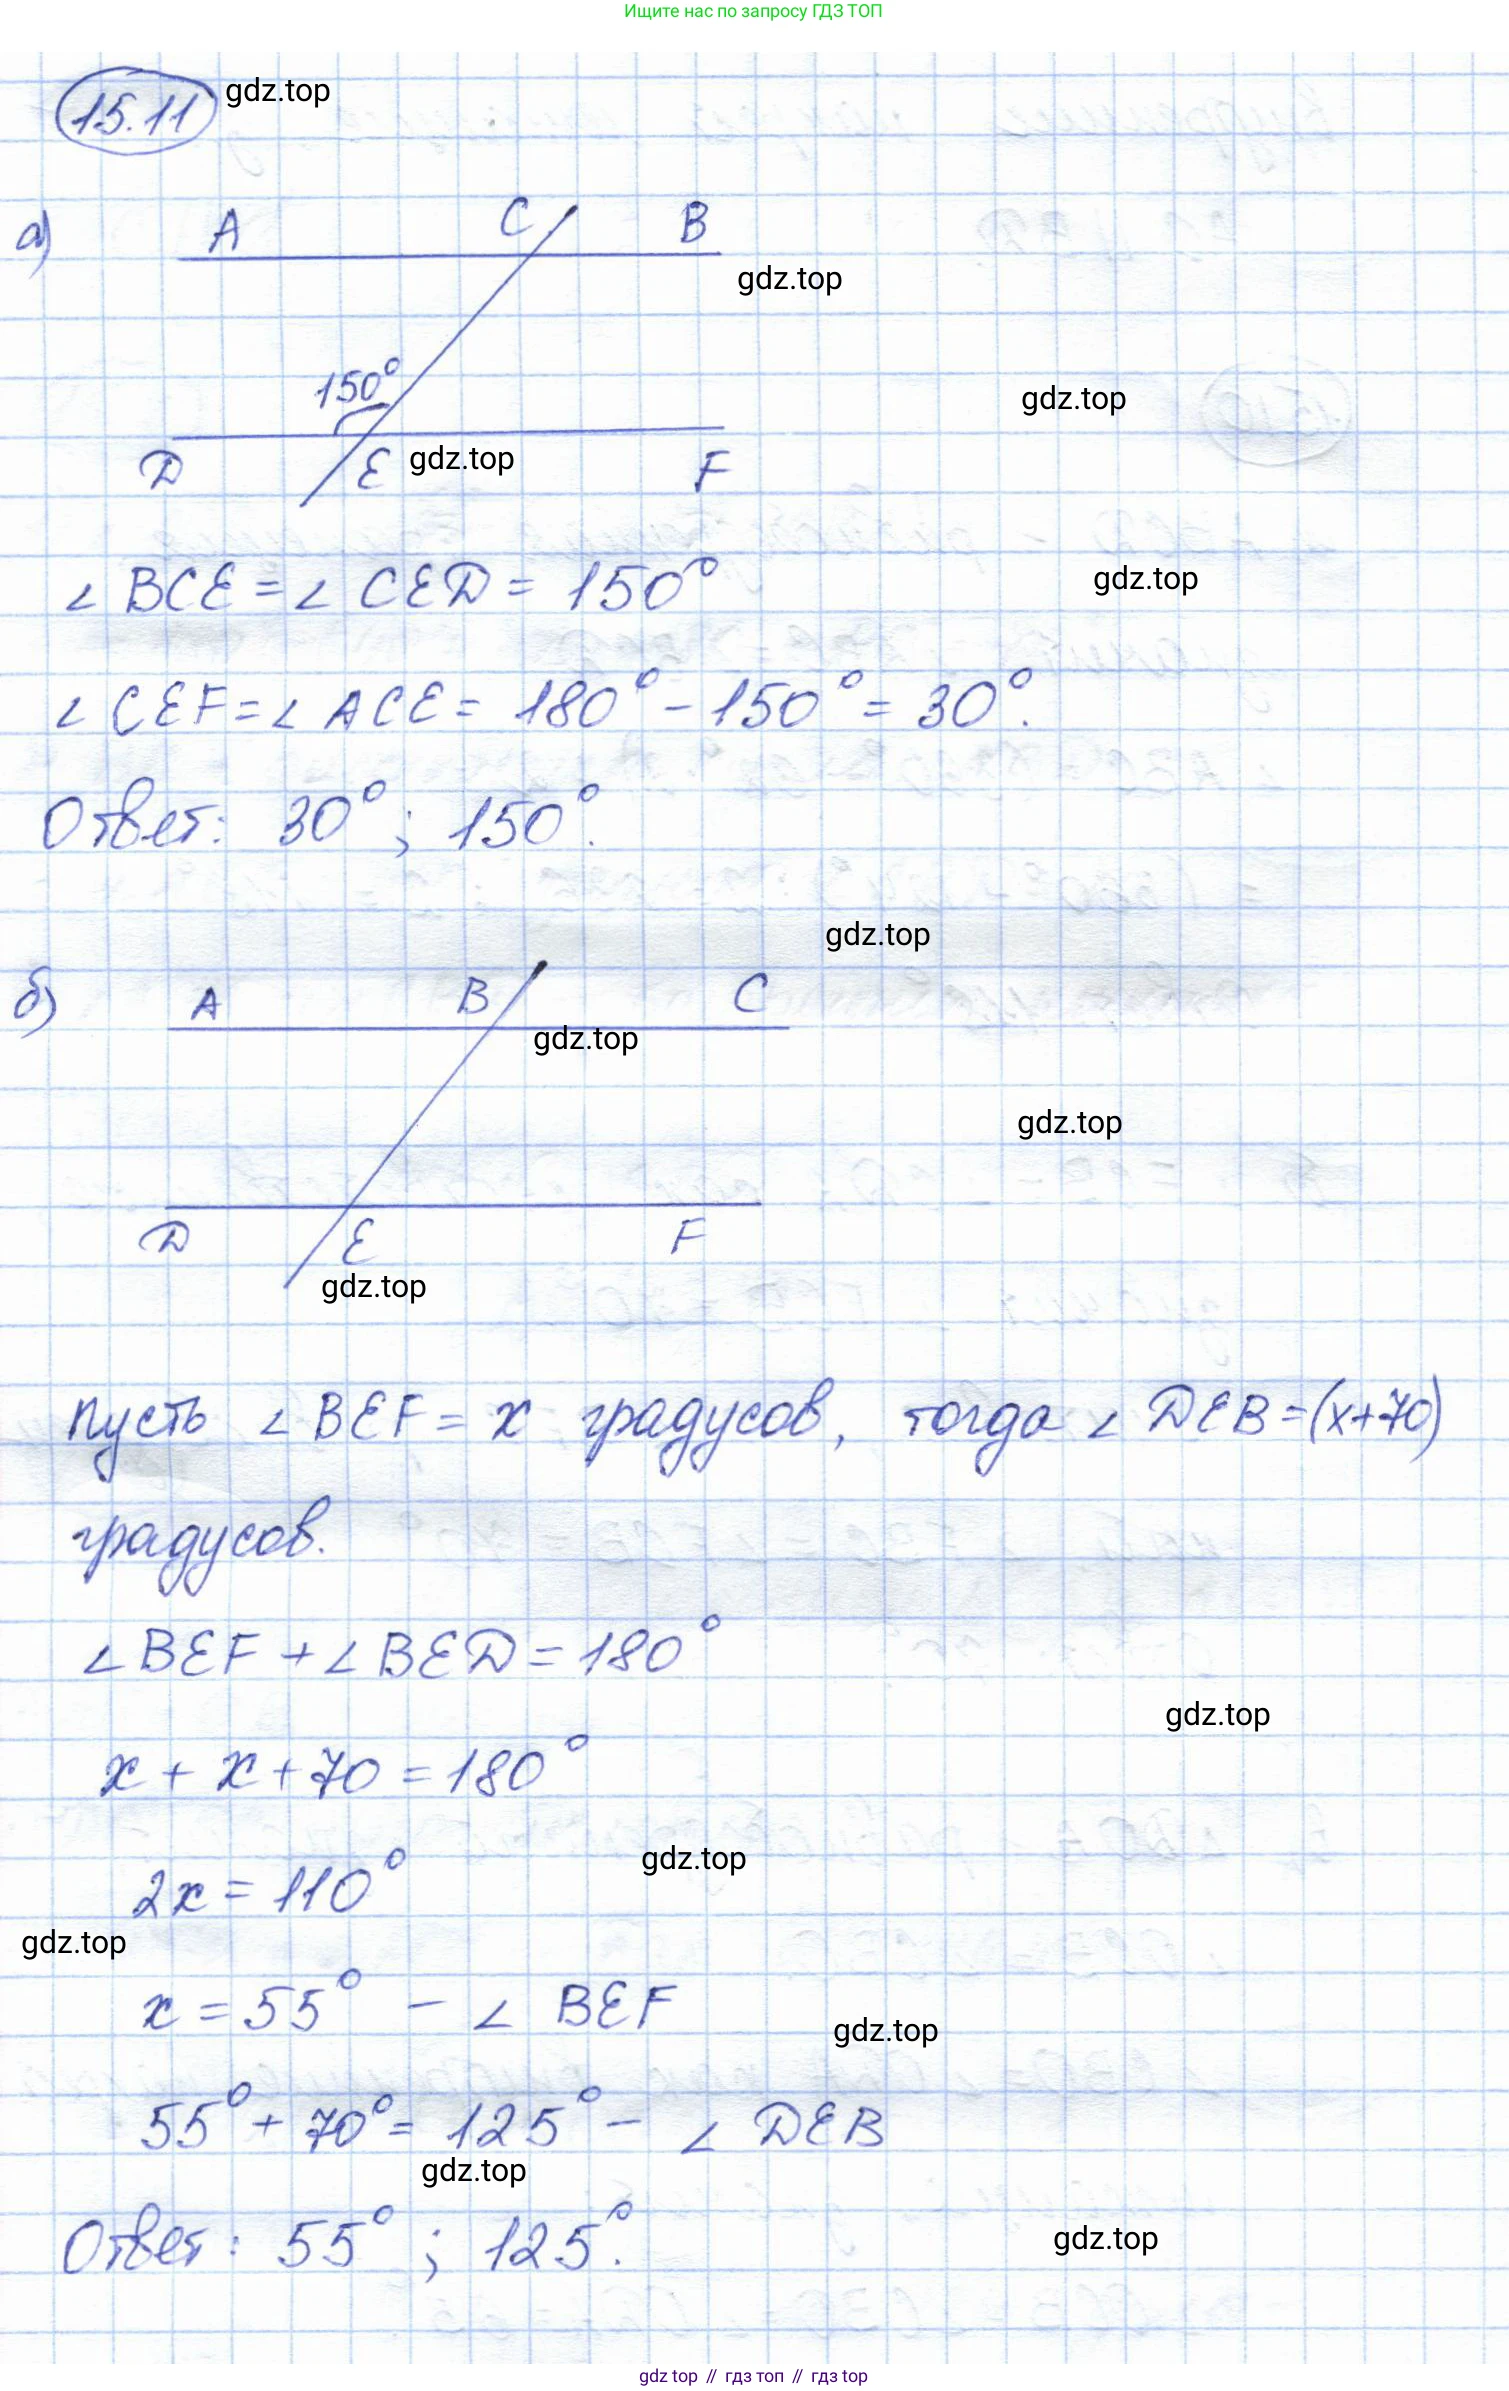 Ищите нас по запросу ГДЗ ТОП
15.11 gdz.top
а) A C B
gdz.top
150°
gdz.top
D E gdz.top F
∠ BCE = ∠ CED = 150°
gdz.top
∠ CEF = ∠ ACE = 180° - 150° = 30°.
Ответ: 30° ; 150°.
gdz.top
б) A B C
gdz.top
gdz.top
D E F
gdz.top
Пусть ∠ BEF = x градусов, тогда ∠ DEB = (x+70)
градусов.
∠ BEF + ∠ BED = 180°
gdz.top
x + x + 70 = 180°
gdz.top
2x = 110°
gdz.top
x = 55° - ∠ BEF
gdz.top
55° + 70° = 125° - ∠ DEB
gdz.top
Ответ: 55° ; 125°.
gdz.top
gdz top // гдз топ // гдз top